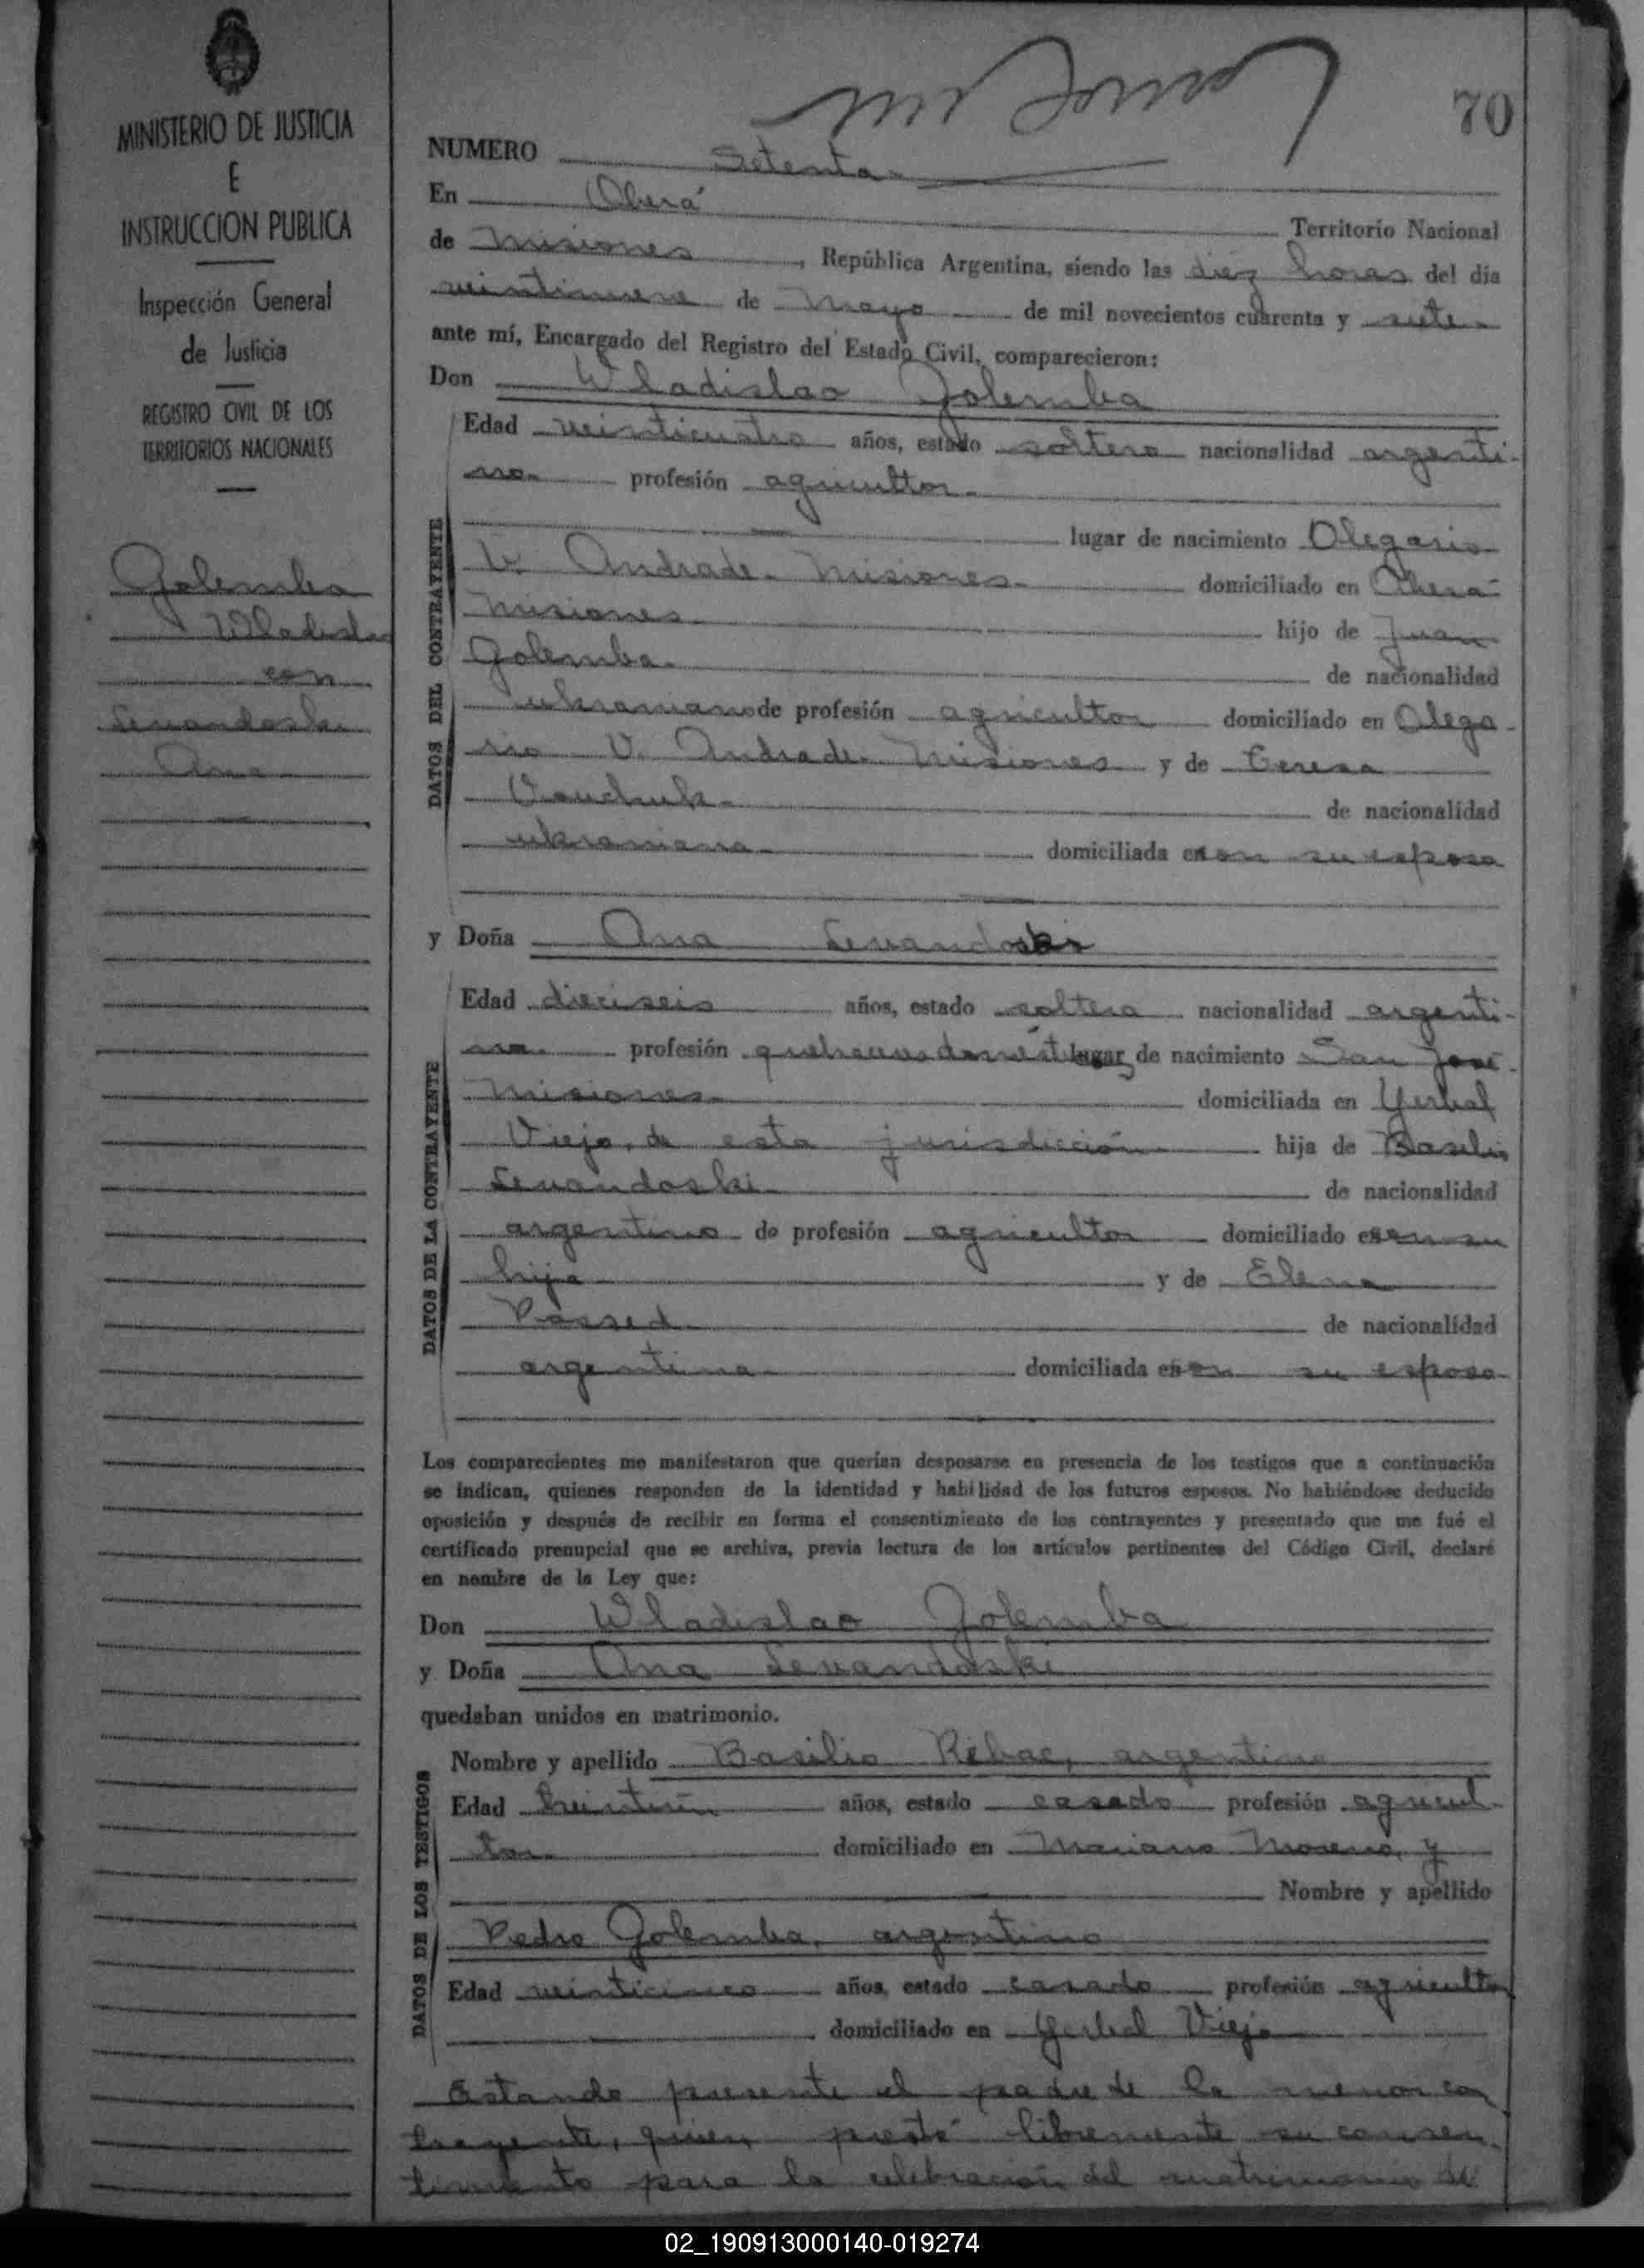 MINISTERIO DE JUSTICIA
E
INSTRUCCION PUBLICA
Inspección General
de Justicia
REGISTRO CIVIL DE LOS
TERRITORIOS NACIONALES
Golemba
Wladislao
con
Levandoski
Ana
70
NUMERO Setenta
En Oberá Territorio Nacional
de Misiones, República Argentina, siendo las diez horas del día
veintinueve de Mayo de mil novecientos cuarenta y siete
ante mí, Encargado del Registro del Estado Civil, comparecieron:
Don Wladislao Golemba
DATOS DEL CONTRAYENTE
Edad veinticuatro años, estado soltero nacionalidad argenti-
no profesión agricultor
lugar de nacimiento Olegario
V. Andrade Misiones domiciliado en Oberá
Misiones hijo de Juan
Golemba de nacionalidad
ukraniano de profesión agricultor domiciliado en Olega-
rio V. Andrade Misiones y de Teresa
de nacionalidad
ukraniana domiciliada en con su esposo
y Doña Ana Levandoski
DATOS DE LA CONTRAYENTE
Edad dieciseis años, estado soltera nacionalidad argenti-
na profesión quehaceres domést. lugar de nacimiento San José
Misiones domiciliada en Yerbal
Viejo, de esta jurisdicción hija de Basilio
Levandoski de nacionalidad
argentino de profesión agricultor domiciliado en con su
hija y de Elena
de nacionalidad
argentina domiciliada en con su esposo
Los comparecientes me manifestaron que querían desposarse en presencia de los testigos que a continuación
se indican, quienes responden de la identidad y habilidad de los futuros esposos. No habiéndose deducido
oposición y después de recibir en forma el consentimiento de los contrayentes y presentado que me fué el
certificado prenupcial que se archiva, previa lectura de los artículos pertinentes del Código Civil, declaré
en nombre de la Ley que:
Don Wladislao Golemba
y Doña Ana Levandoski
quedaban unidos en matrimonio.
DATOS DE LOS TESTIGOS
Nombre y apellido Basilio Ribac, argentino
Edad años, estado casado profesión agricul-
tor domiciliado en Mariano Moreno, y
Nombre y apellido
Pedro Golemba, argentino
Edad veinticinco años, estado casado profesión agricultor
domiciliado en Yerbal Viejo
Estando presente el padre de la menor con
trayente, quien prestó libremente su consen-
timiento para la celebración del matrimonio de
02_190913000140-019274